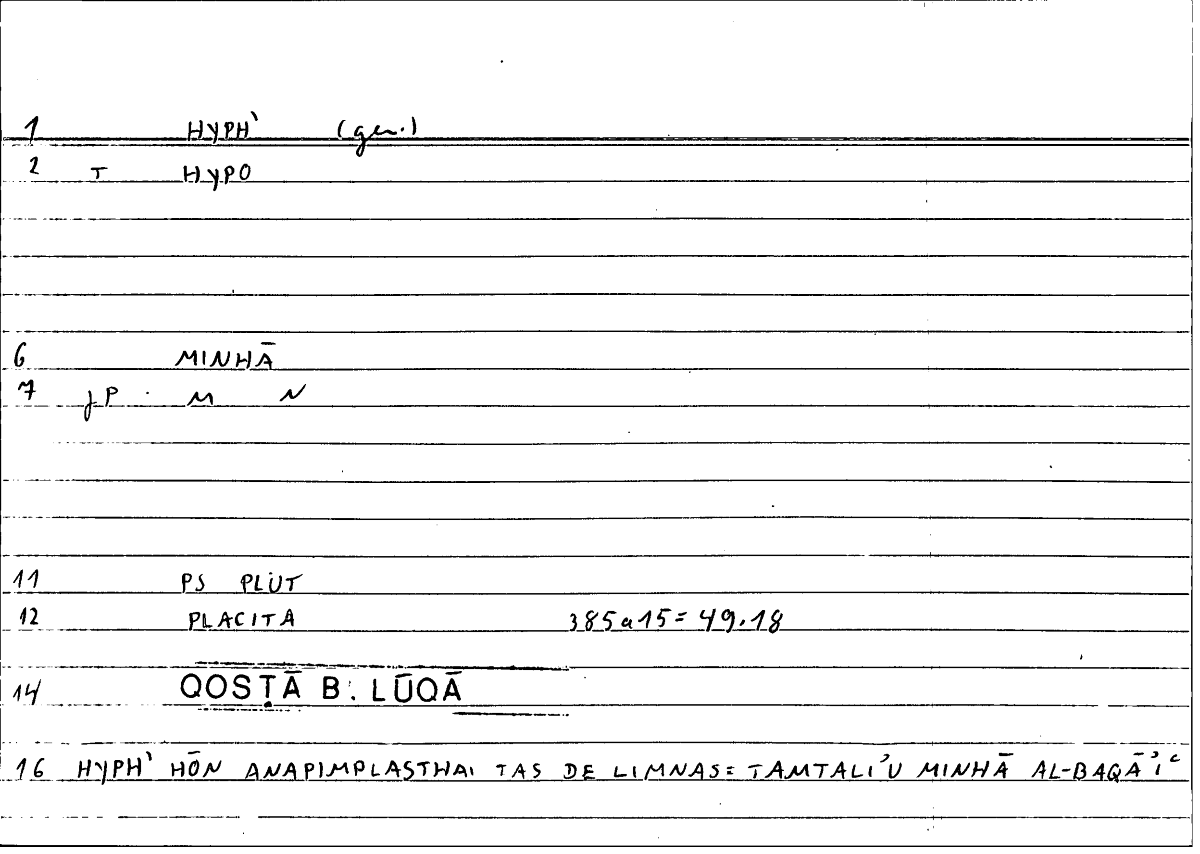 1 HYPH' (gen.)
2 T HYPO
6 MINHĀ
7 JP M N
11 PS PLUT
12 PLACITA 385a15=49.18
14 QOSṬĀ B. LŪQĀ
16 HYPH' HŌN ANAPIMPLASTHAI TAS DE LIMNAS= TAMTALI'U MINHĀ AL-BAQĀ'Iʿ